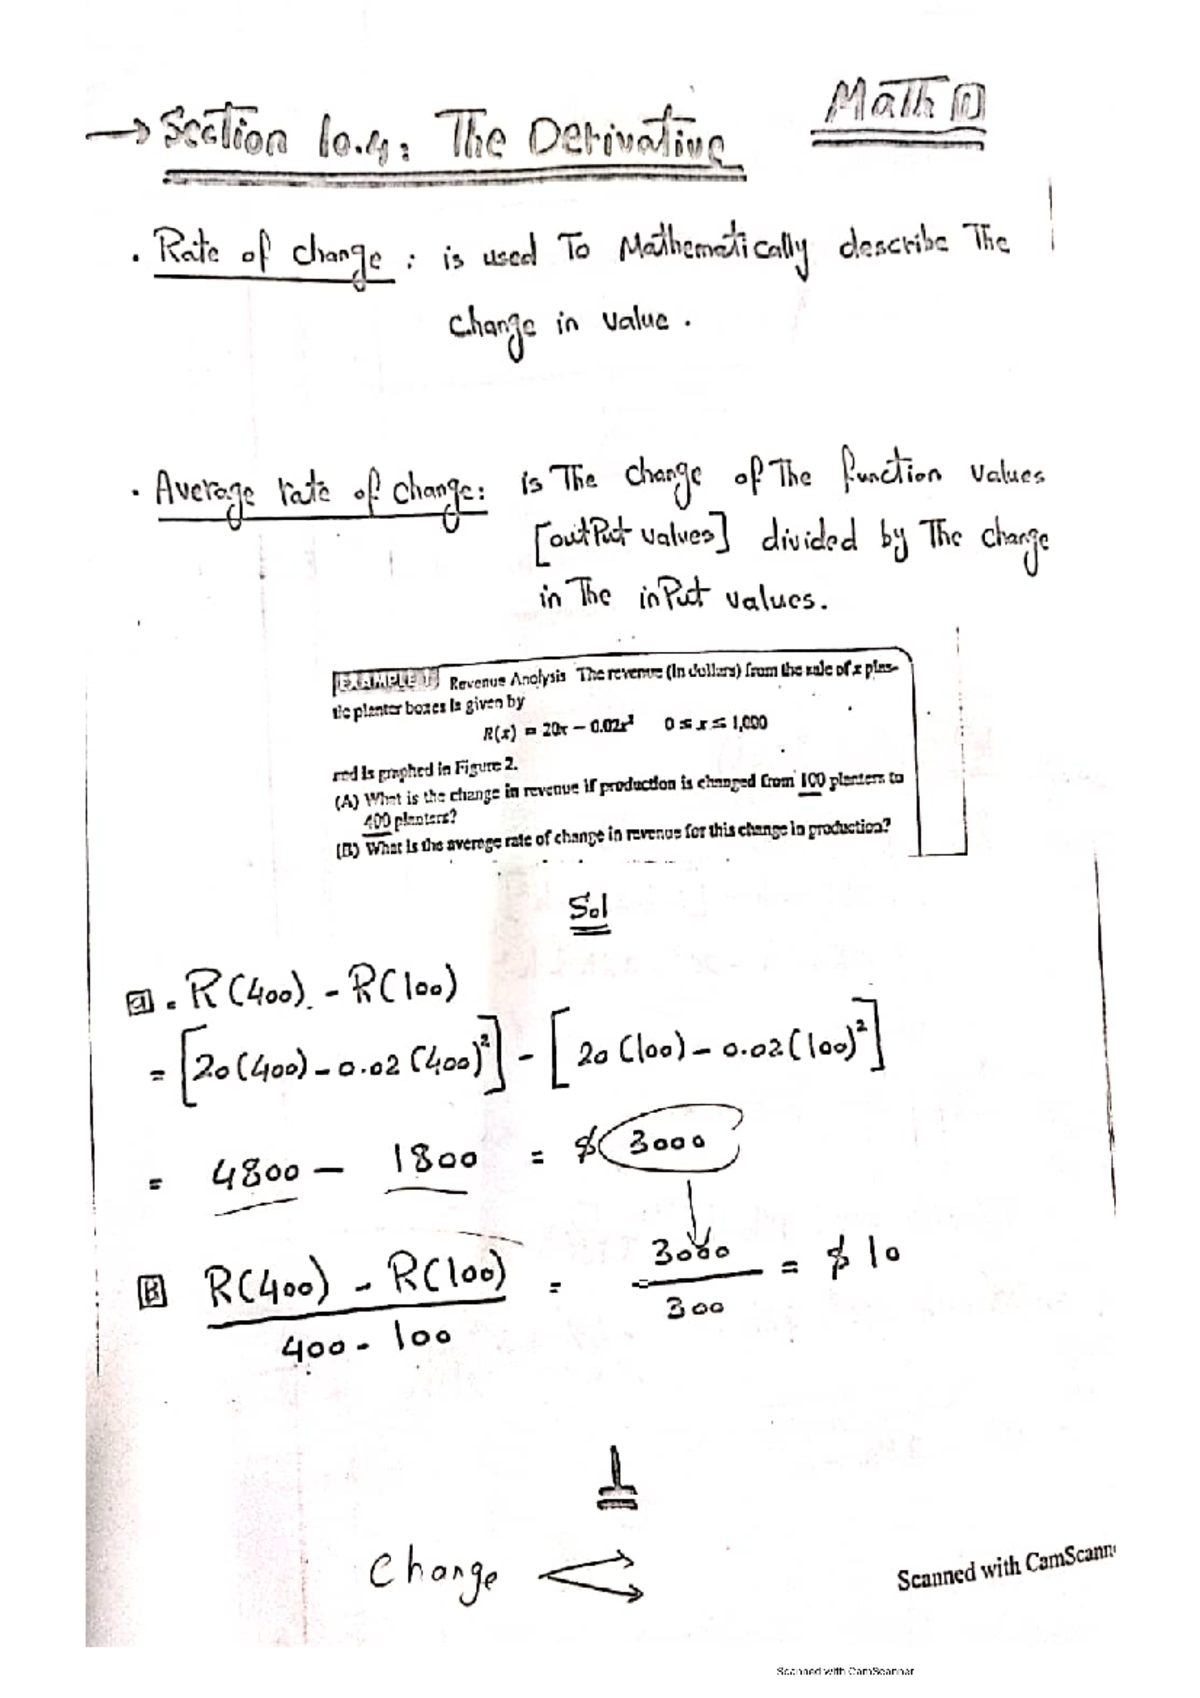 Math 1
→ Section 10.4: The Derivative
. Rate of change : is used To Mathematically describe The
change in value .
. Average rate of change: is The change of The function values
[outPut values] divided by The change
in The inPut values.
EXAMPLE 1 Revenue Analysis The revenue (in dollars) from the sale of x plas-
tic planter boxes is given by
R(x) = 20x − 0.02x² 0 ≤ x ≤ 1,000
and is graphed in Figure 2.
(A) What is the change in revenue if production is changed from 100 planters to
400 planters?
(B) What is the average rate of change in revenue for this change in production?
Sol
a . R(400) - R(100)
= [20(400) - 0.02(400)²] - [20(100) - 0.02(100)²]
= 4800 - 1800 = $ 3000
B R(400) - R(100) / 400 - 100 = 3000 / 300 = $ 10
1
Change
Scanned with CamScann
Scanned with CamScanner